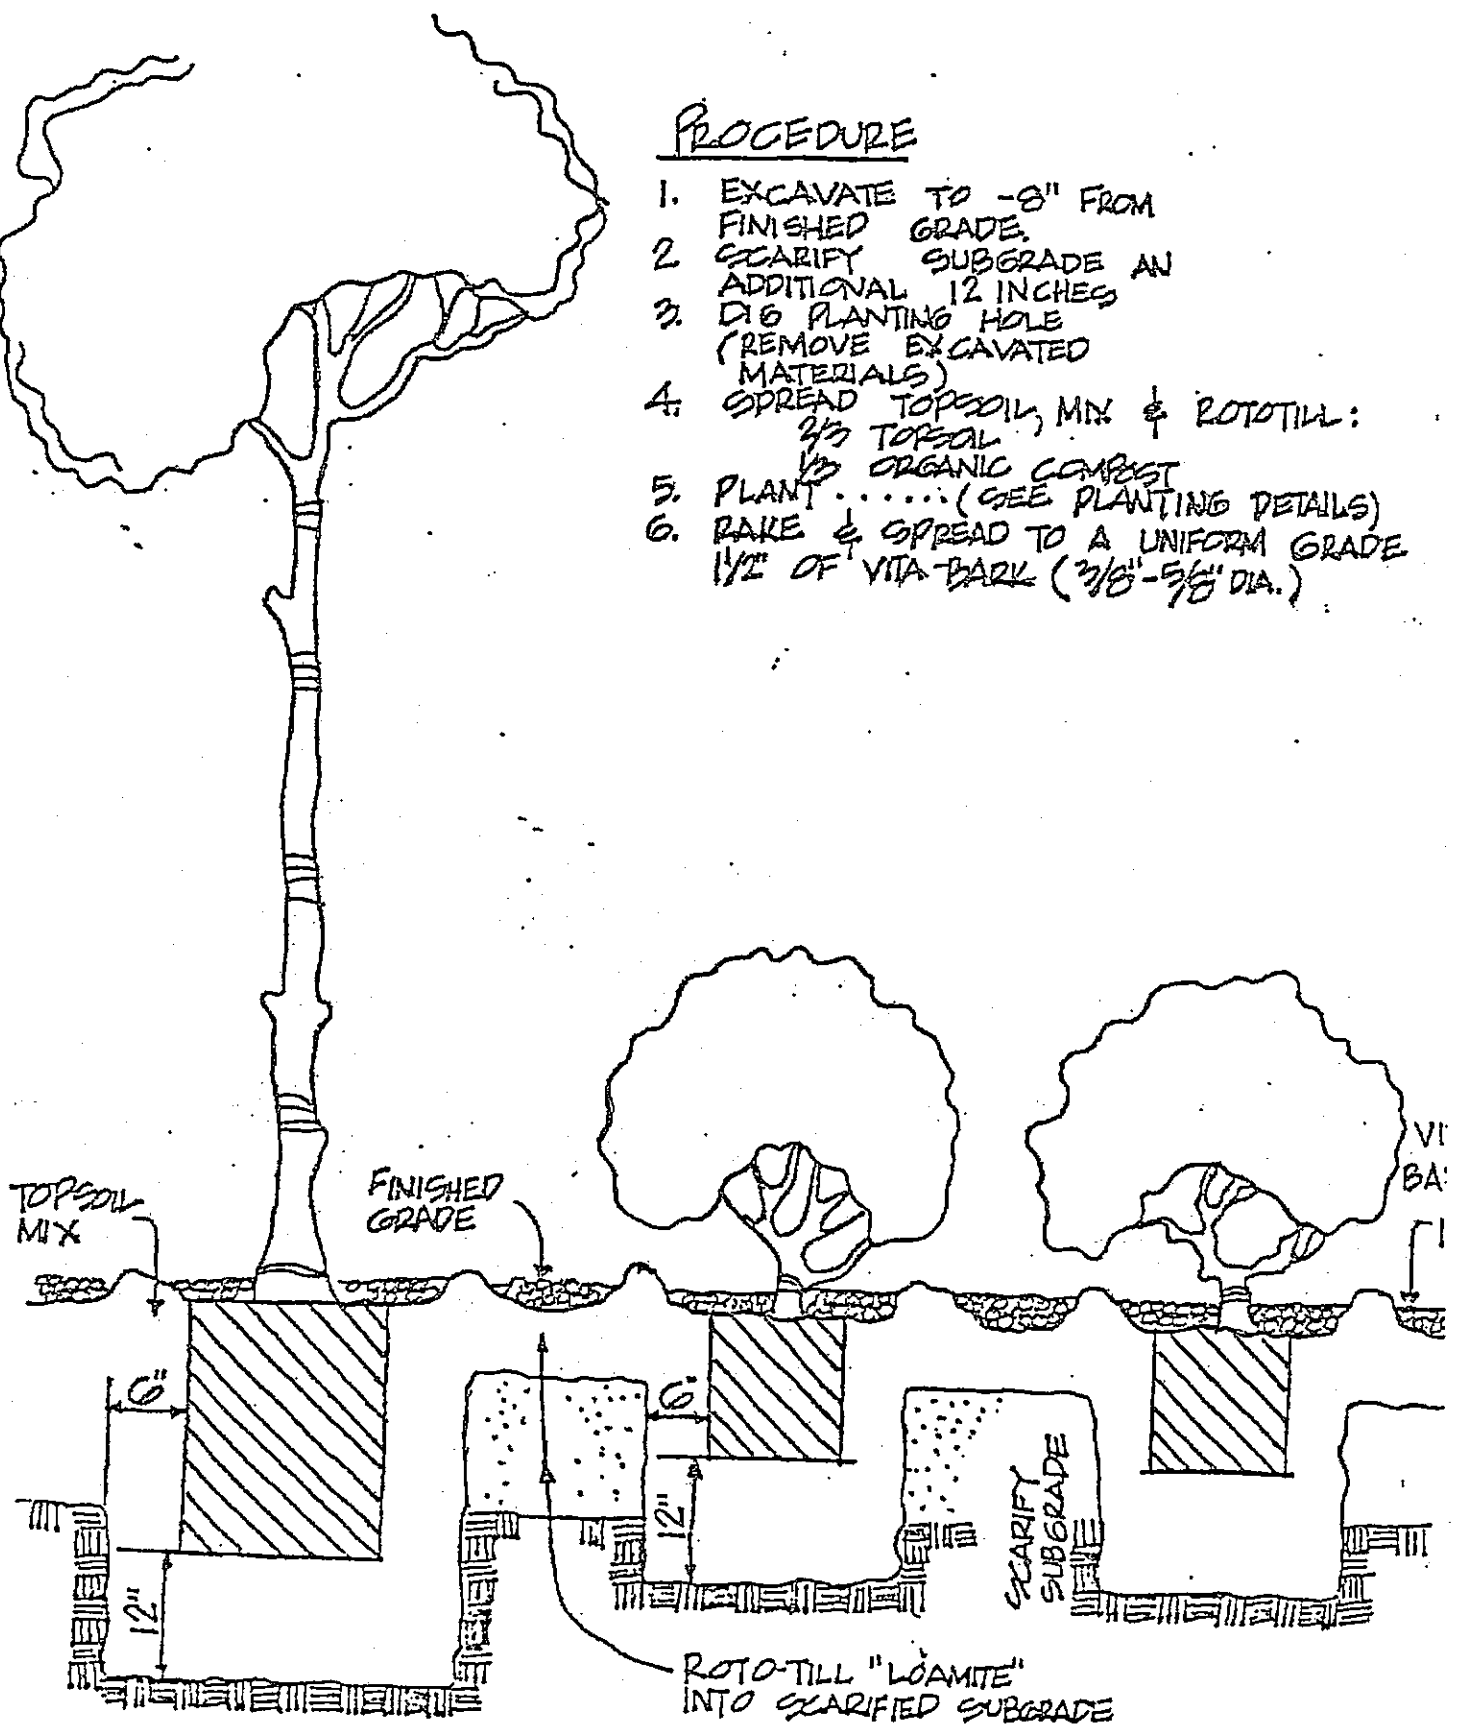 PROCEDURE
1. EXCAVATE TO -8" FROM
FINISHED GRADE.
2 SCARIFY SUBGRADE AN
ADDITIONAL 12 INCHES
3. DIG PLANTING HOLE
(REMOVE EXCAVATED
MATERIALS)
4. SPREAD TOPSOIL, MIX & ROTOTILL:
2/3 TOPSOIL
1/3 ORGANIC COMPOST
5. PLANT ......(SEE PLANTING DETAILS)
6. RAKE & SPREAD TO A UNIFORM GRADE
1 1/2" OF VITA-BARK (3/8"-5/8" DIA.)
TOPSOIL
MIX
FINISHED
GRADE
VI
BA
6"
6"
12"
12"
SCARIFY
SUBGRADE
ROTO-TILL "LOAMITE"
INTO SCARIFIED SUBGRADE